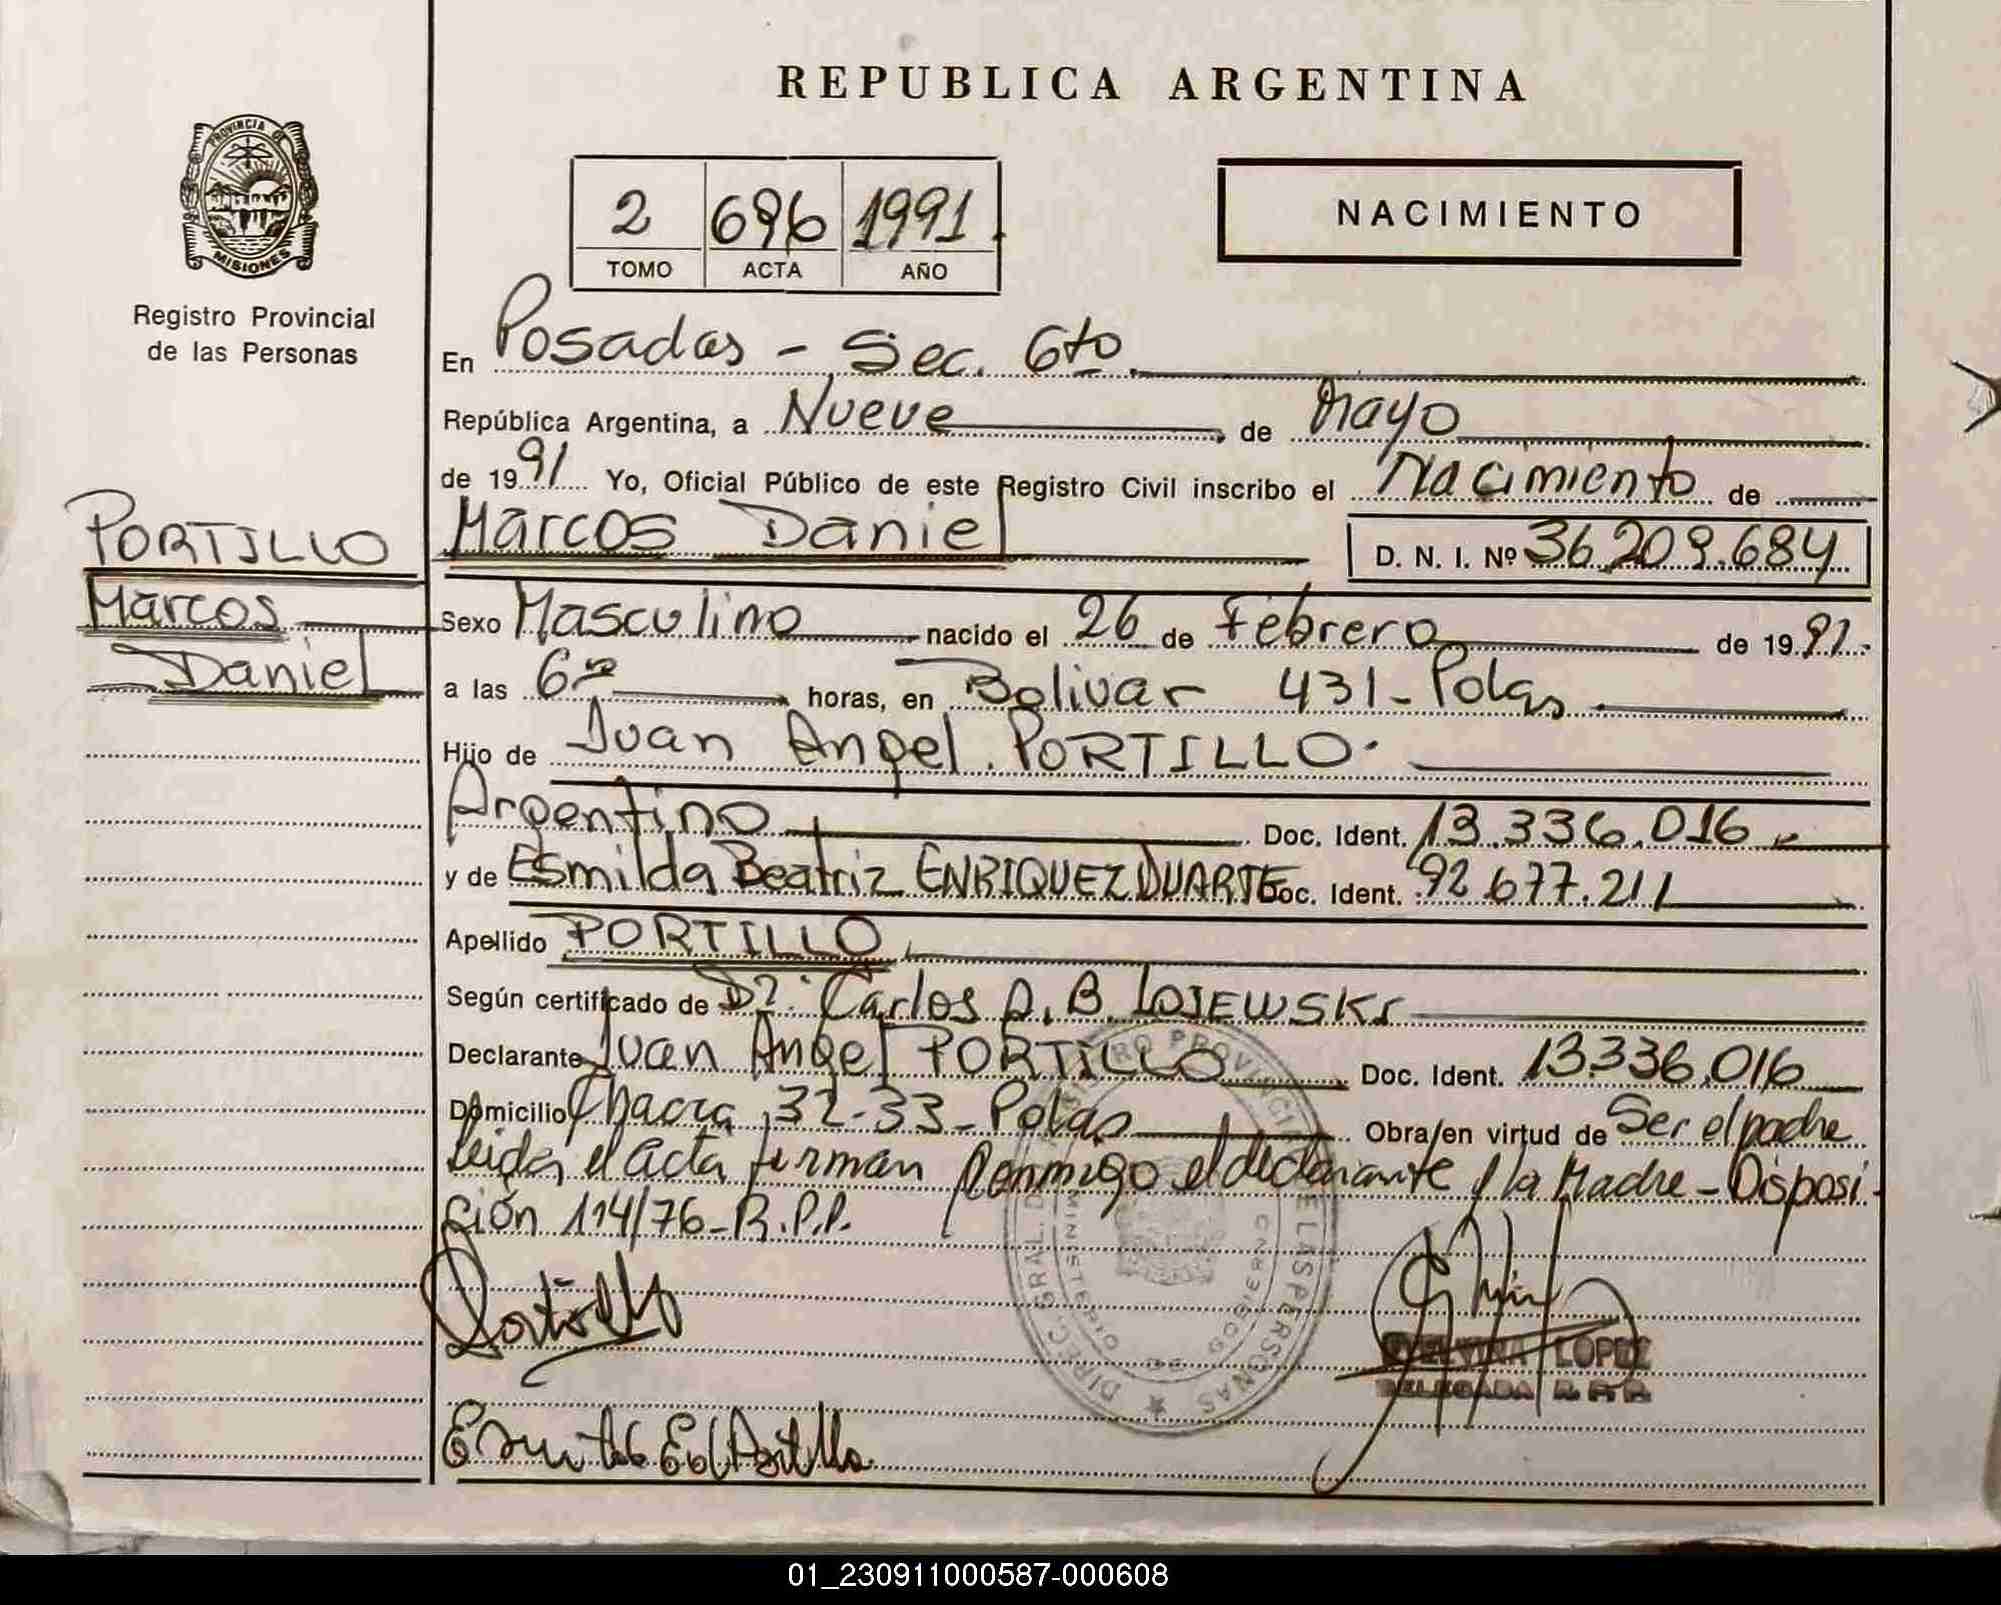 REPUBLICA ARGENTINA
PROVINCIA DE
MISIONES
Registro Provincial
de las Personas
2 696 1991
TOMO ACTA AÑO
NACIMIENTO
En Posadas - Sec. 6to.
República Argentina, a Nueve de Mayo
de 1991 Yo, Oficial Público de este Registro Civil inscribo el Nacimiento de
Marcos Daniel D. N. I. Nº 36.209.684
PORTILLO
Marcos
Daniel
Sexo Masculino nacido el 26 de Febrero de 1991.
a las 6 horas, en Bolivar 431 - Pdas
Hijo de Juan Angel PORTILLO.
Argentino Doc. Ident. 13.336.016
y de Esmilda Beatriz ENRIQUEZ DUARTE Doc. Ident. 92.677.211
Apellido PORTILLO
Según certificado de Dr. Carlos A. B. LOJEWSKI
Declarante Juan Angel PORTILLO Doc. Ident. 13.336.016
Domicilio Chacra 32-33 - Pdas Obra/en virtud de Ser el padre
Leida el acta firman conmigo el declarante y la Madre - Disposi-
ción 114/76 - R.P.P.
DIREC. GRAL. DEL REGISTRO PROVINCIAL DE LAS PERSONAS
MINISTERIO DE GOBIERNO
Portillo
LOPEZ
DELEGADA R.P.P.
01_230911000587-000608